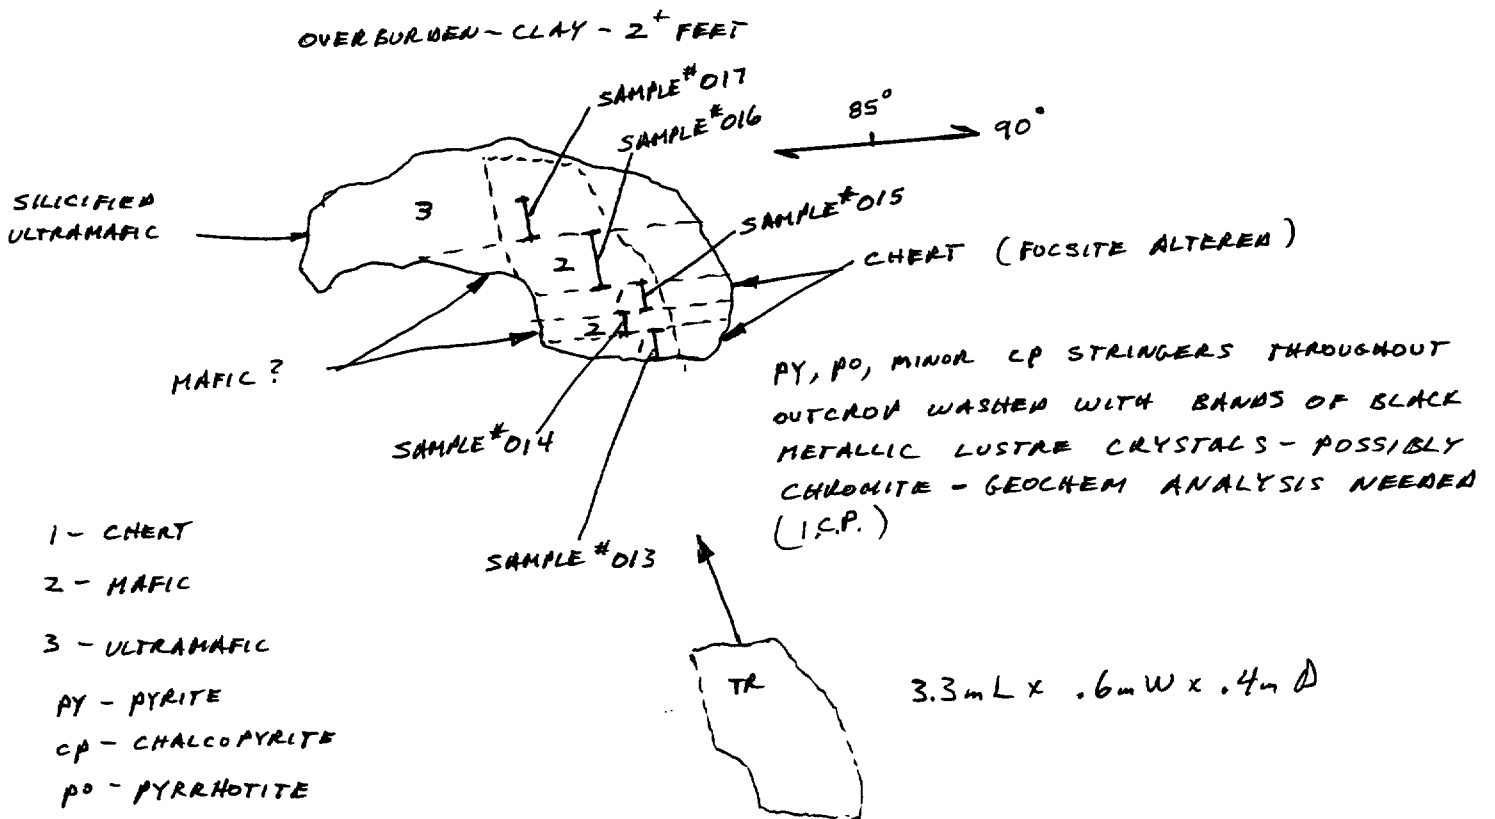 OVERBURDEN - CLAY - 2+ FEET
SAMPLE #017
SAMPLE #016
85°
90°
SILICIFIED
ULTRAMAFIC
3
SAMPLE #015
CHERT (FOCSITE ALTERED)
2
2
MAFIC?
SAMPLE #014
PY, PO, MINOR CP STRINGERS THROUGHOUT
OUTCROP WASHED WITH BANDS OF BLACK
METALLIC LUSTRE CRYSTALS - POSSIBLY
CHROMITE - GEOCHEM ANALYSIS NEEDED
(I.C.P.)
SAMPLE #013
1 - CHERT
2 - MAFIC
3 - ULTRAMAFIC
PY - PYRITE
CP - CHALCOPYRITE
PO - PYRRHOTITE
TR
3.3m L x .6m W x .4m D